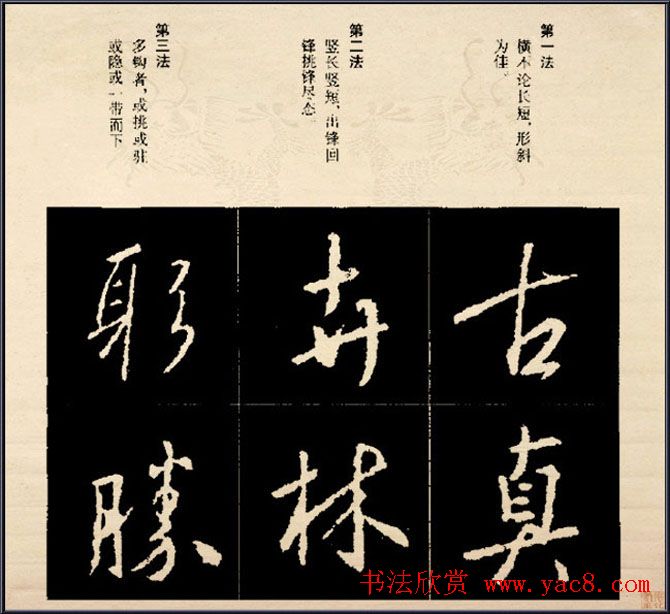 第一法
横不论长短，形斜
为佳。
第二法
竖长竖短，出锋回
锋挑锋尽态。
第三法
多钩者，或挑或驻
或隐或一带而下
古
真
卉
林
躬
勝
书法欣赏 www.yac8.com